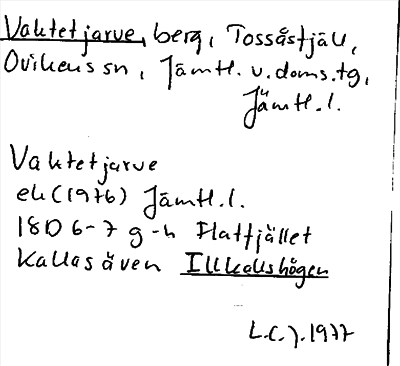 Vaktetjarve, berg, Tossåstjäll,
Ovikens sn, Jämtl. v. doms. tg,
Jämtl. l.
Vaktetjarve
ek (1976) Jämtl. l.
18D 6-7 g-h Flatfjället
Kallas även Illkallshögen
L.C.J. 1977